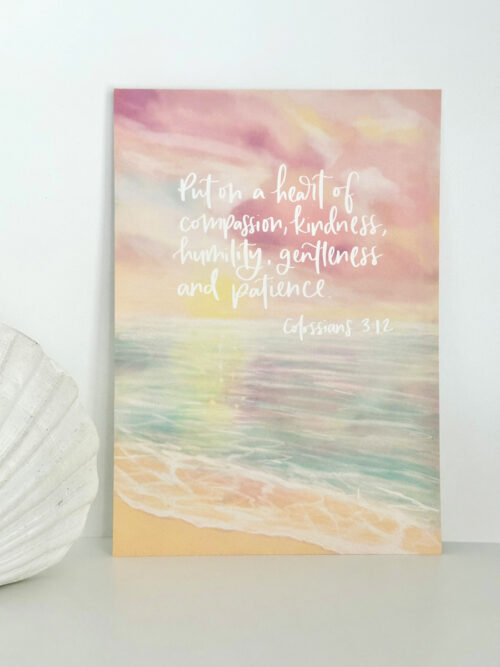 Put on a heart of
compassion, kindness,
humility, gentleness
and patience.
Colossians 3:12